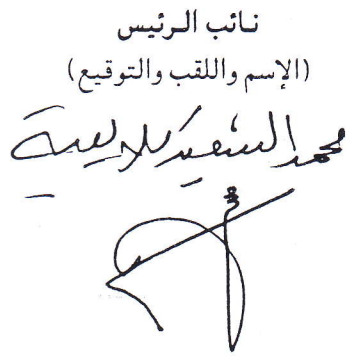 نائب الرئيس
(الإسم واللقب والتوقيع)
محمد السعيد